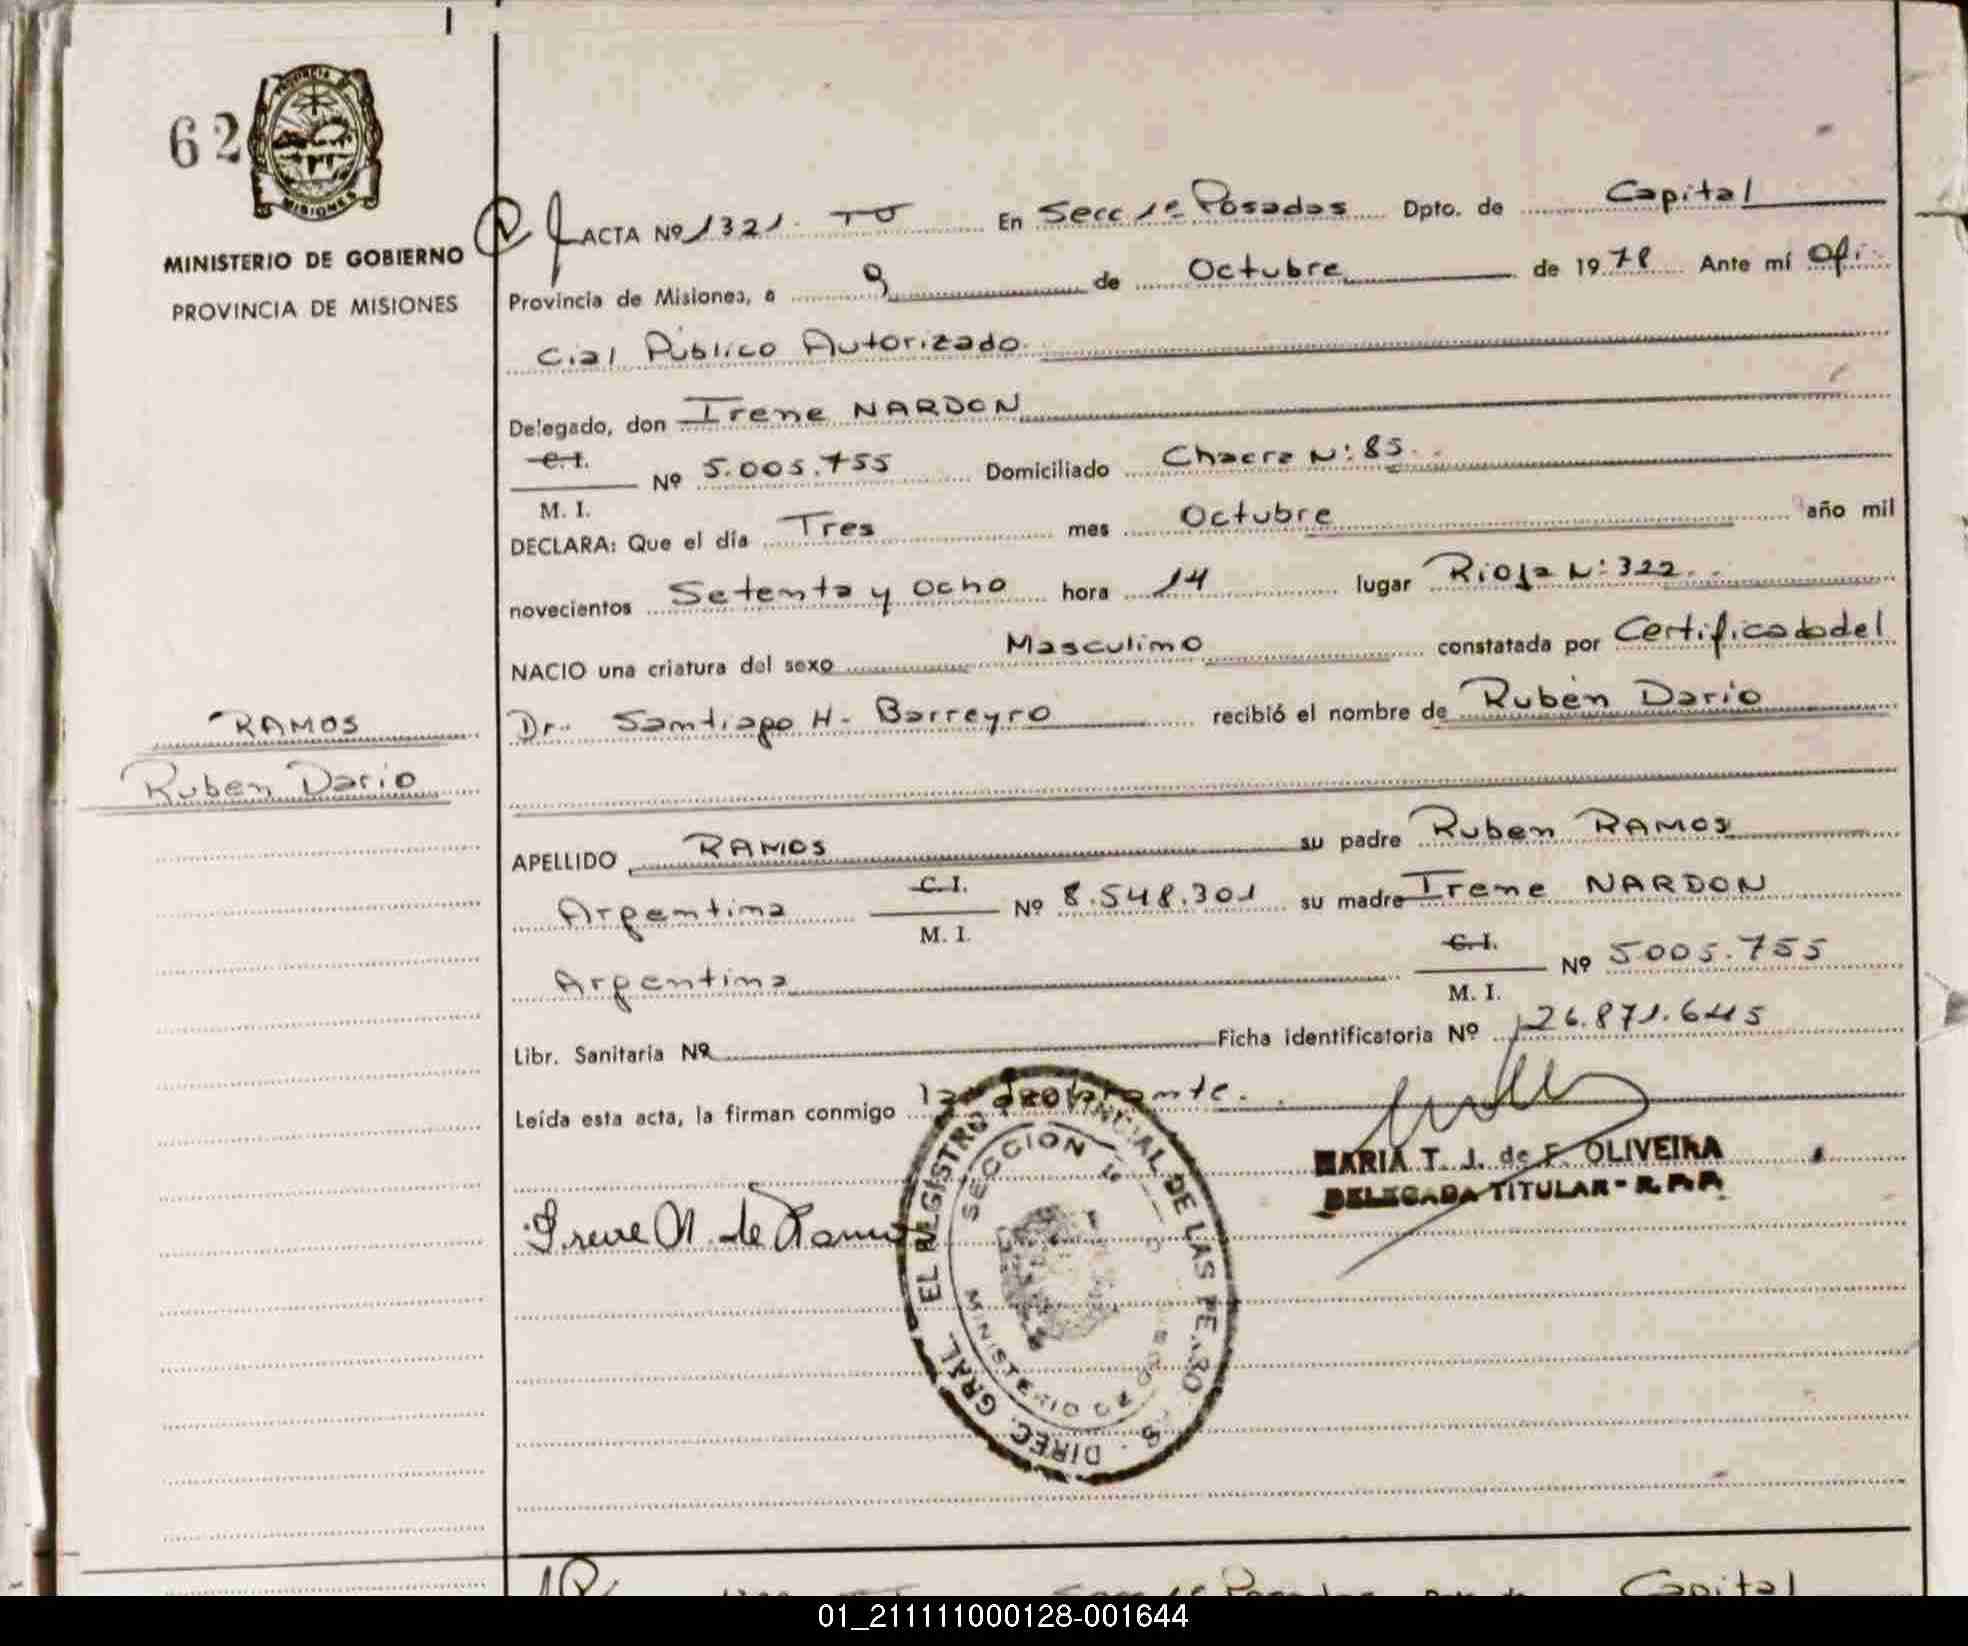 62
PROVINCIA DE
MISIONES
MINISTERIO DE GOBIERNO
PROVINCIA DE MISIONES
RAMOS
Ruben Dario
ACTA Nº 1321. TU En Secc 1ª Posadas Dpto. de Capital
Provincia de Misiones, a 9 de Octubre de 1978 Ante mí Ofi-
cial Público Autorizado.
Delegado, don Irene NARDON
C.I.
M. I. Nº 5.005.755 Domiciliado Chacra N: 85.
DECLARA: Que el día Tres mes Octubre año mil
novecientos Setenta y Ocho hora 14 lugar Rioja N: 322.
NACIO una criatura del sexo Masculino constatada por Certificado del
Dr. Santiago H. Barreyro recibió el nombre de Rubén Dario
APELLIDO RAMOS su padre Ruben RAMOS
Argentina C.I. M. I. Nº 8.548.301 su madre Irene NARDON
Argentina C.I. M. I. Nº 5.005.755
Libr. Sanitaria Nº Ficha identificatoria Nº 26.871.645
Leída esta acta, la firman conmigo la declarante.
MARIA T. J. de F. OLIVEIRA
DELEGADA TITULAR - R.P.P.
Irene N. de Ramos
DIREC. GRAL. EL REGISTRO PROVINCIAL DE LAS PE
SECCION 1ª
Posadas Capital
01_211111000128-001644